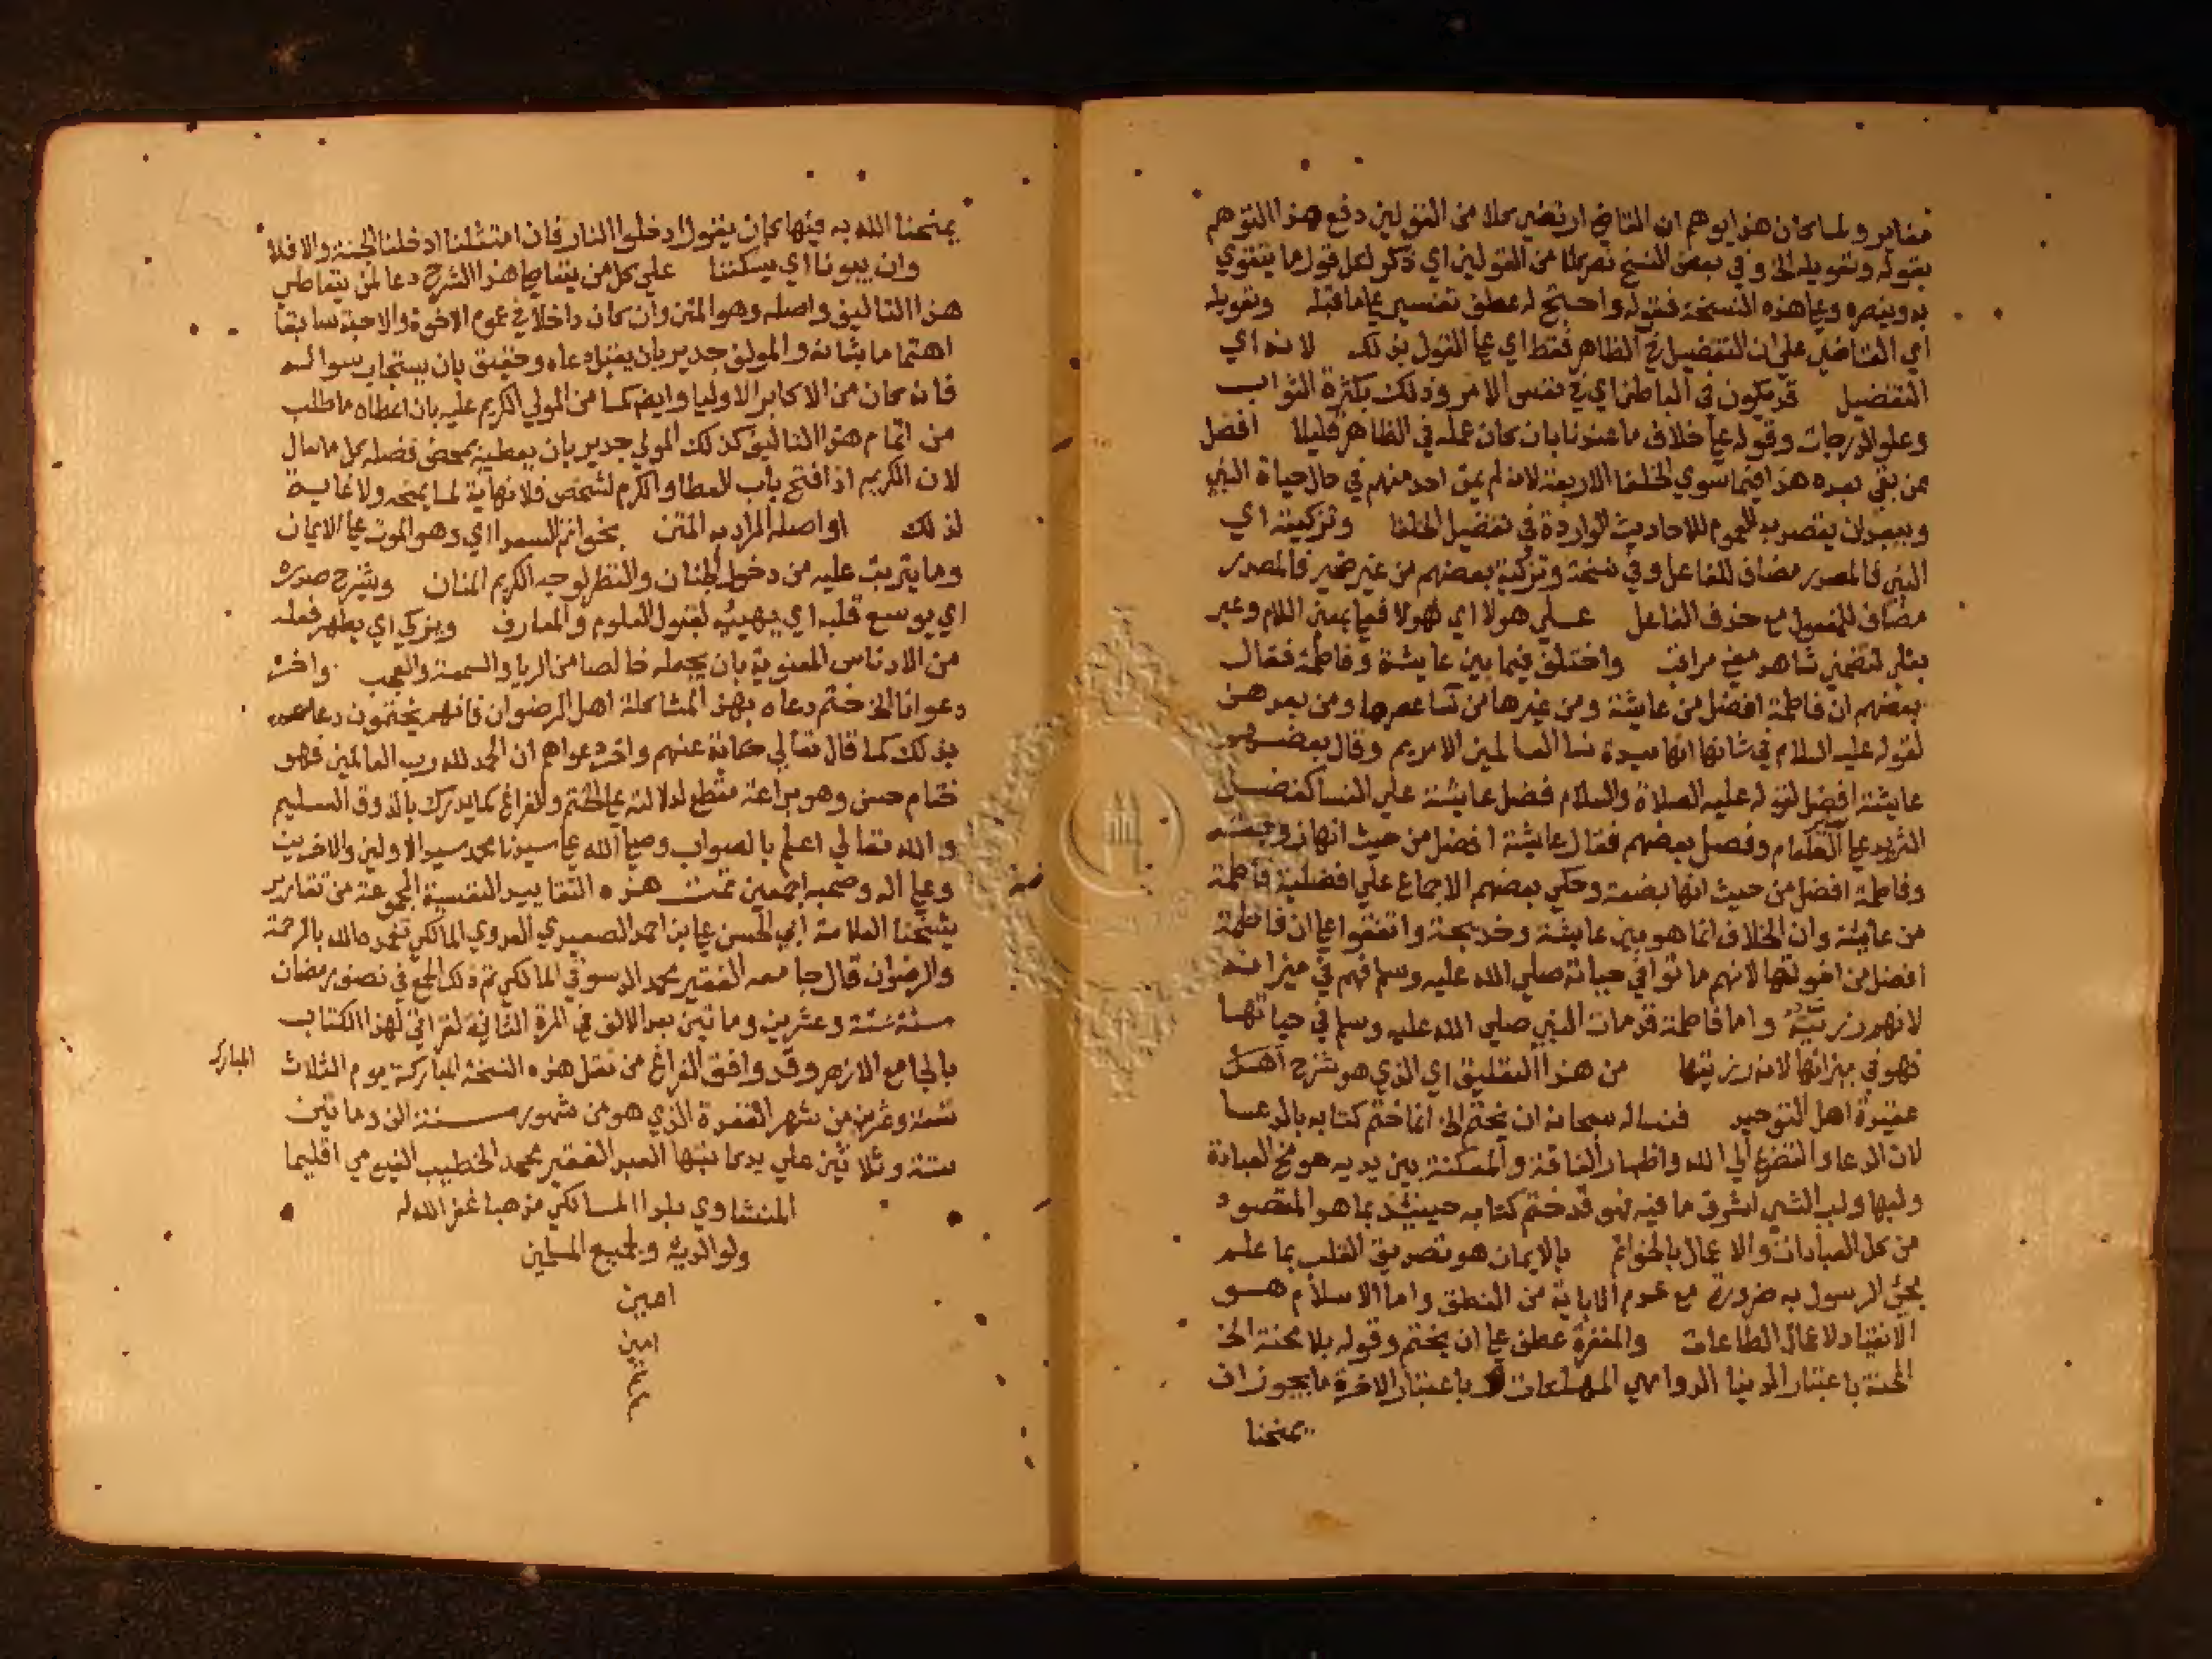 مغاير ولما كان هذا يوهم ان القاضي ارتضى كلا من القولين دفع هذا التوهم
بقوله وتقويله الخ وفي بعض النسخ نصر كلا من القولين اي ذكر لكل قول ما يتقوي
به وينصره وعلى هذه النسخة فقوله واحتج له عطف تفسير على ما قبله وتقويله
اي القاضي علي ان التفضيل في الظاهر فقط اي على القول بذلك لانه اي
التفضيل قد يكون في الباطن اي في نفس الامر وذلك بكثرة الثواب
وعلو الدرجات وقوله على خلاف ما عندنا بان كان عمله في الظاهر قليلا افضل
ممن بقي بعده هذا فيما سوي الخلفا الاربعة لانه لم يمت احد منهم في حال حياة النبي
ويبعد ان يقصد به العموم للاحاديث الواردة في تفضيل الخلفا وتزكيته اي
النبي فالمصدر مضاف للفاعل وفي نسخة وتزكية بعضهم من غير ضمير فالمصدر
مضاف للمفعول مع حذف الفاعل علي هولا اي لهولا فعلى بمعنى اللام وعبر
بعلى لتضمين شاهد معنى مراقب واختلف فيما بين عايشة وفاطمة فقال
بعضهم ان فاطمة افضل من عايشة ومن غيرها من نسا عصرها ومن بعدهن
لقوله عليه السلام في شانها انها سيدة نسا العالمين الا مريم وقال بعضهم
عايشة افضل لقوله عليه الصلاة والسلام فضل عايشة علي النسا كفضل
الثريد على الطعام وفصل بعضهم فقال عايشة افضل من حيث انها زوجته
وفاطمة افضل من حيث انها بضعة وحكي بعضهم الاجماع علي افضلية فاطمة
من عايشة وان الخلاف انما هو بين عايشة وخديجة واتفقوا على ان فاطمة
افضل من اخوتها لانهم ماتوا في حياته صلي الله عليه وسلم فهم في ميزانه
لانهم رزيته واما فاطمة فقد مات النبي صلي الله عليه وسلم في حياتها
فهو في ميزانها لانه رزيتها من هذا التعليق اي الذي هو شرح اهل
عقيدة اهل التوحيد فنساله سبحانه ان يختم الخ انما ختم كتابه بالدعا
لان الدعا والتضرع الي الله واظهار الفاقة والمسكنة بين يديه هو مخ العبادة
ولبها ولب الشي اشرف ما فيه فهو قد ختم كتابه حينيذ بما هو المقصود
من كل العبادات والاعمال بالخواتم بالايمان هو تصديق القلب بما علم
مجي الرسول به ضرورة مع عدم الاباية من النطق واما الاسلام هو
الانقياد لاعمال الطاعات والمغفرة عطف على ان يختم وقوله بلا محنة الخ
المحنة باعتبار الدنيا الدواهي المهلكات وباعتبار الاخرة ما يجوز ان
يمتحنا
يمتحنا الله به فيها كان يقول ادخلوا النار فان امتثلنا ادخلنا الجنة والا فلا
وان يبونا اي يسكننا علي كل من يتعاطى هذا الشرح دعا لمن يتعاطي
هذا التاليف واصله وهو المتن وان كان داخلا في عموم الاخوة والاحبة سابقا
اهتماما بشانه والمولف جدير بان يقبل دعاه وحقيق بان يستجاب سواله
فانه كان من الاكابر الاوليا وايض كما من المولي الكريم عليه بان اعطاه ما طلب
من اتمام هذا التاليف كذلك المولي جدير بان يعطيه بمحض فضله كل ما سال
لان الكريم اذا فتح باب العطا والكرم لشخص فلا نهاية لما يمنحه ولا غاية
لذلك او اصله المراد به المتن بخواتم السعدا اي وهو الموت على الايمان
وما يترتب عليه من دخول الجنان والنظر لوجه الكريم المنان ويشرح صدره
اي يوسع قلبه اي يهييه لقبول العلوم والمعارف ويزكي اي يطهر فعله
من الادناس المعنوية بان يجعله خالصا من الريا والسمعة والعجب واخر
دعوانا الخ ختم دعاه بهذا المشاكلة اهل الرضوان فانهم يختمون دعاهم
بذلك كما قال تعالي حكاية عنهم واخر دعواهم ان الحمد لله رب العالمين فهو
ختام حسن وهو براعة مقطع لدلالته على الختم والفراغ كما يدرك بالذوق السليم
والله تعالي اعلم بالصواب وصلى الله على سيدنا محمد سيد الاولين والاخرين
وعلى اله وصحبه اجمعين تمت هذه التقاييد النفيسة المجموعة من تقارير
شيخنا العلامة ابي الحسن علي بن احمد الصعيدي العدوي المالكي تغمده الله بالرحمة
والرضوان قال جامعه الفقير محمد الدسوقي المالكي تم ذلك الجمع في نصف رمضان
سنة ستة وعشرين وماتين بعد الالف في المرة الثانية لقراتي لهذا الكتاب
المبارك
بالجامع الازهر وقد وافق الفراغ من نقل هذه النسخة المباركة يوم الثلاث
ستة وعشرين من شهر القعدة الذي هو من شهور سنة الف وماتين
ستة وثلاثين علي يد كاتبها العبد الفقير محمد الخطيب الفيومي اقليما
المنشاوي بلدا المالكي مذهبا غفر الله له
ولوالديه ولجميع المسلمين
امين
امين